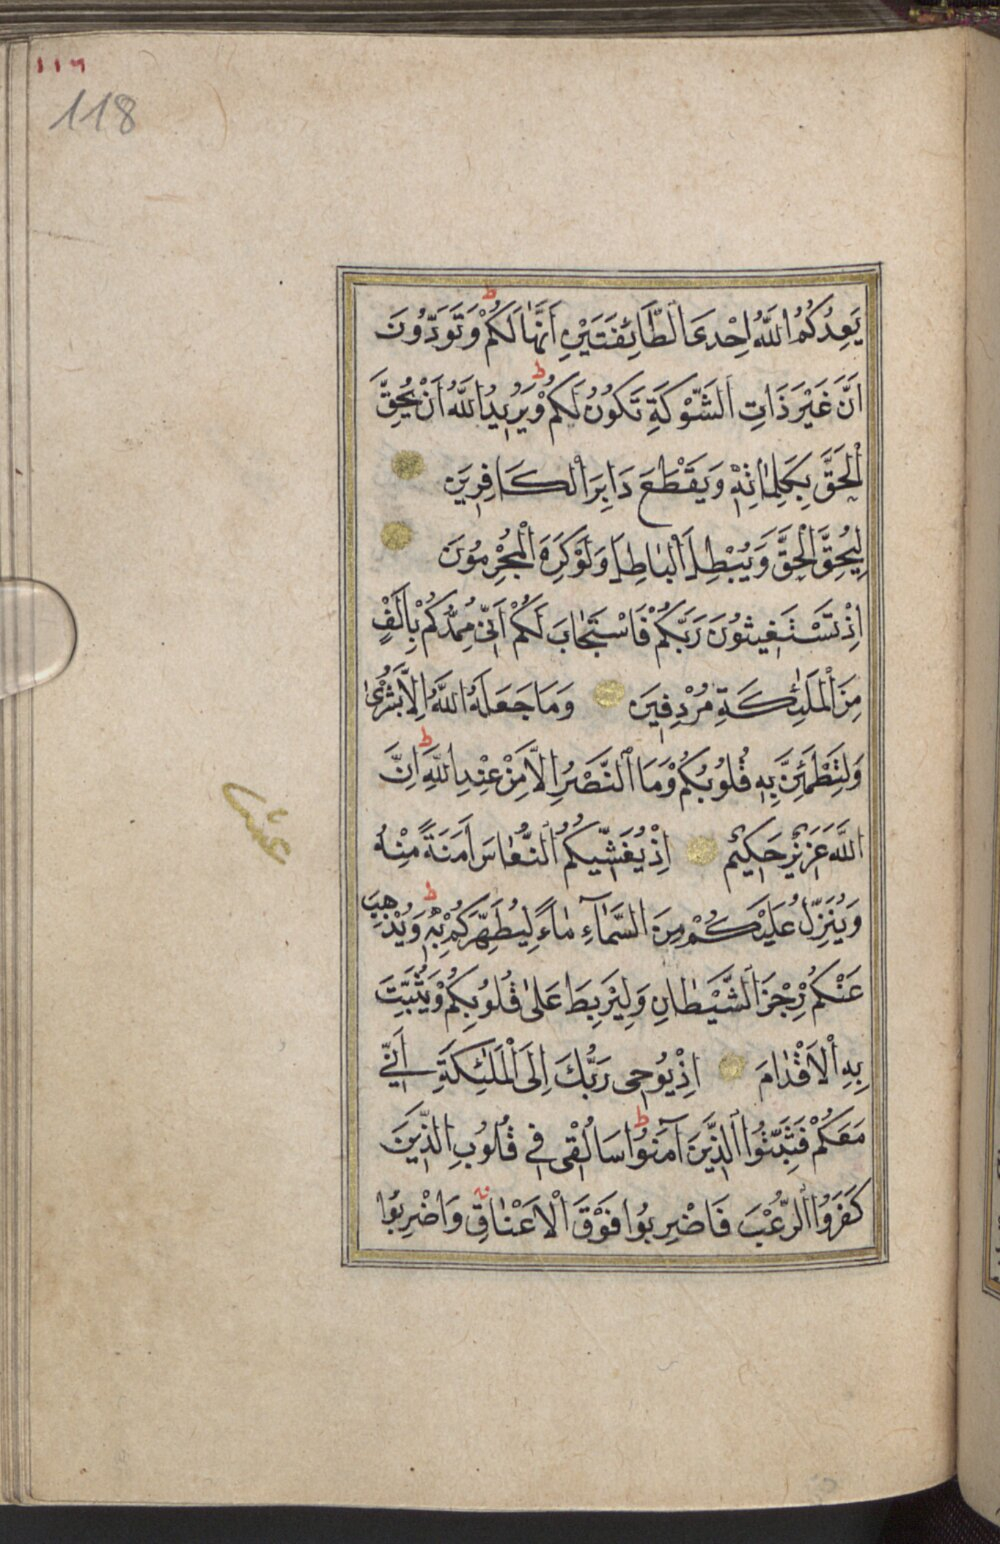 ١١٦
118
يَعِدُكُمُ اللّٰهُ اِحْدَى الطَّٓائِفَتَيْنِ اَنَّهَا لَكُمْ وَتَوَدُّونَ
ط
اَنَّ غَيْرَ ذَاتِ الشَّوْكَةِ تَكُونُ لَكُمْ وَيُرِيدُ اللّٰهُ اَنْ يُحِقَّ
ط
الْحَقَّ بِكَلِمَاتِهِ وَيَقْطَعَ دَابِرَ الْكَافِرِينَ
لِيُحِقَّ الْحَقَّ وَيُبْطِلَ الْبَاطِلَ وَلَوْ كَرِهَ الْمُجْرِمُونَ
اِذْ تَسْتَغِيثُونَ رَبَّكُمْ فَاسْتَجَابَ لَكُمْ اَنِّي مُمِدُّكُمْ بِاَلْفٍ
مِنَ الْمَلٰٓئِكَةِ مُرْدِفِينَ وَمَا جَعَلَهُ اللّٰهُ اِلَّا بُشْرٰى
وَلِتَطْمَئِنَّ بِهِ قُلُوبُكُمْ وَمَا النَّصْرُ اِلَّا مِنْ عِنْدِ اللّٰهِ اِنَّ
ط
اللّٰهَ عَزِيزٌ حَكِيمٌ اِذْ يُغَشِّيكُمُ النُّعَاسَ اَمَنَةً مِنْهُ
عشر
وَيُنَزِّلُ عَلَيْكُمْ مِنَ السَّمَٓاءِ مَٓاءً لِيُطَهِّرَكُمْ بِهِ وَيُذْهِبَ
ط
عَنْكُمْ رِجْزَ الشَّيْطَانِ وَلِيَرْبِطَ عَلٰى قُلُوبِكُمْ وَيُثَبِّتَ
بِهِ الْاَقْدَامَ اِذْ يُوحِي رَبُّكَ اِلَى الْمَلٰٓئِكَةِ اَنِّي
مَعَكُمْ فَثَبِّتُوا الَّذِينَ اٰمَنُوا سَاُلْقِي فِي قُلُوبِ الَّذِينَ
ط
كَفَرُوا الرُّعْبَ فَاضْرِبُوا فَوْقَ الْاَعْنَاقِ وَاضْرِبُوا